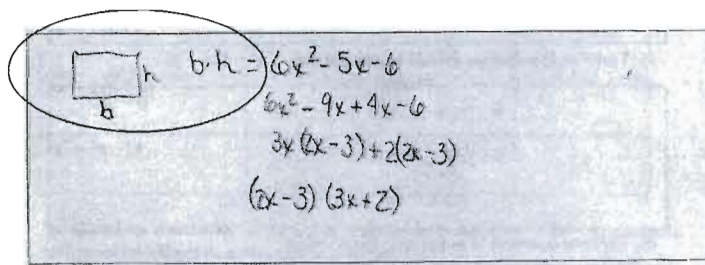 b·h = 6x² - 5x - 6
h
b
6x² - 9x + 4x - 6
3x(2x-3)+2(2x-3)
(2x-3)(3x+2)